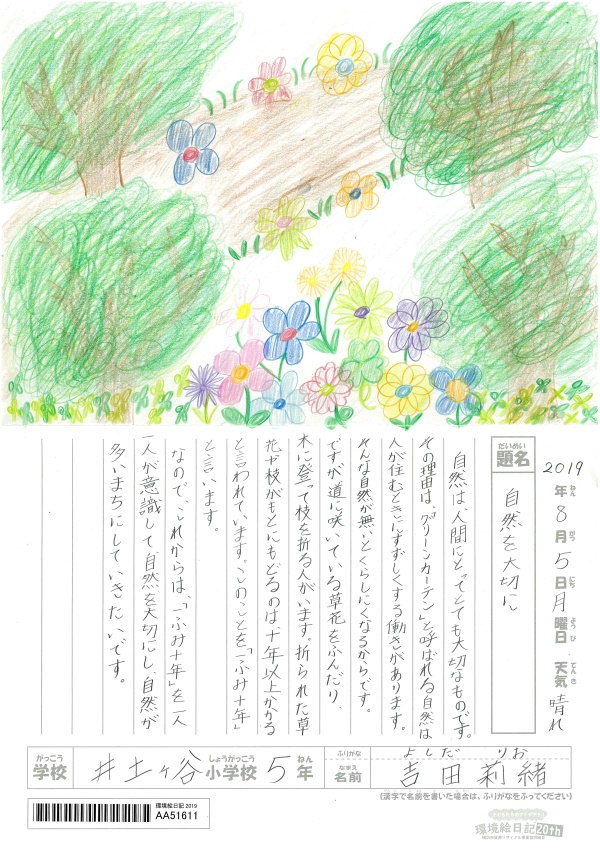 2019年8月5日月曜日 天気 晴れ
ねん がつ にち ようび てんき
だいめい
題名
自然を大切に
自然は、人間にとってとても大切なものです。
その理由は、「グリーンカーテン」と呼ばれる自然は
人が住むときにすずしくする働きがあります。
そんな自然が無いとくらしにくくなるからです。
ですが道に咲いている草花をふんだり、
木に登って枝を折る人がいます。折られた草
花や枝がもとにもどるのは、十年以上かかる
と言われています。このことを「ふみ十年」
と言います。
なので、これからは、「ふみ十年」を一人
一人が意識して、自然を大切にし、自然が
多いまちにしていきたいです。
がっこう しょうがっこう ねん
学校 井土ヶ谷 小学校 5年
ふりがな よしだ りお
なまえ
名前 吉田莉緒
(漢字で名前を書いた場合は、ふりがなをふってください)
環境絵日記 2019
AA51611
環境絵日記20th